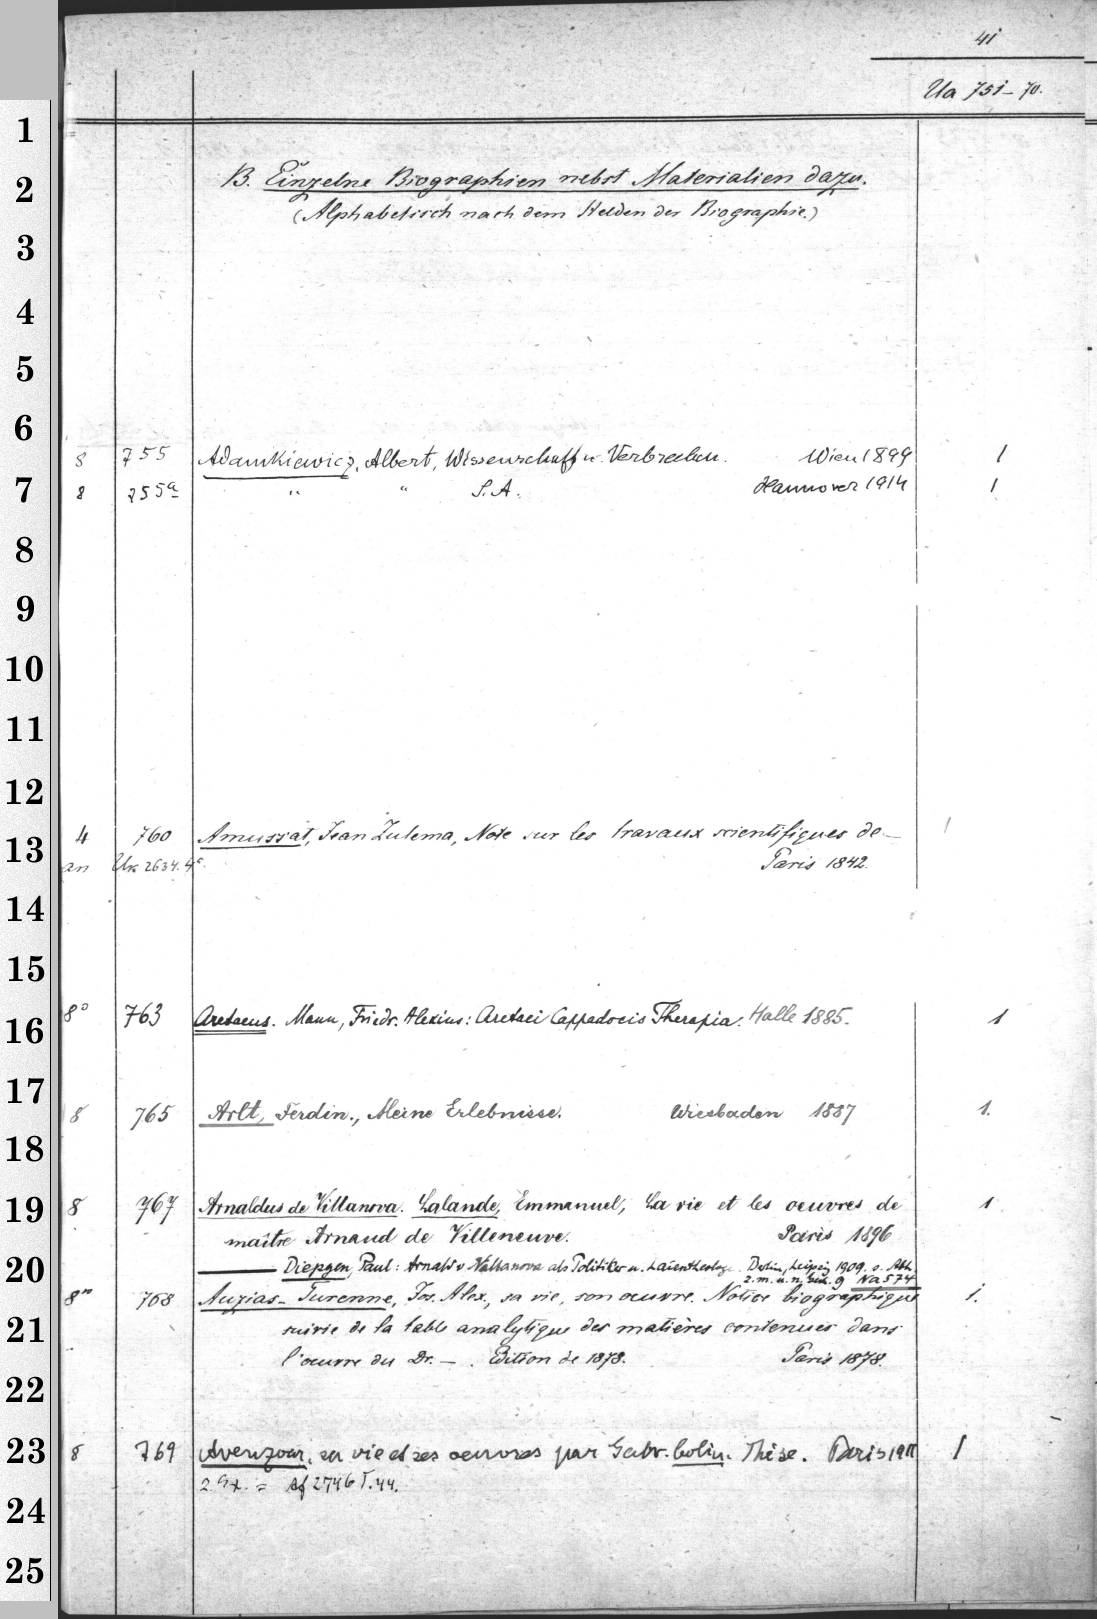 41
Ua 751–70.
B. Einzelne Biographien nebst Materialien dazu.
(Alphabetisch nach dem Helden der Biographie.)
8 755 Adamkiewicz, Albert, Wissenschaft u. Verbrechen. Wien 1899 1
8 755a " " S.A. Hannover 1914 1
4 760 Amussat, Jean Zulema, Note sur les travaux scientifiques de — 1
an Ua 2634. 4°. Paris 1842.
8° 763 Aretaeus. Mann, Friedr. Alexius: Aretaei Cappadocis Therapia. Halle 1885. 1
8 765 Arlt, Ferdin., Meine Erlebnisse. Wiesbaden 1887 1.
8 767 Arnaldus de Villanova. Lalande, Emmanuel, La vie et les oeuvres de 1
maître Arnaud de Villeneuve. Paris 1896
——— Diepgen, Paul: Arnald v Villanova als Politiker u. Laientheologe. Berlin, Leipzig 1909. s. Abh.
z. m. u. n. Gesch. 9 Na 574
8° 768 Auzias-Turenne, Jos. Alex., sa vie, son oeuvre. Notice biographique 1.
suivie de la table analytique des matières contenues dans
l'oeuvre du Dr. — . Edition de 1878. Paris 1878.
8 769 Avenzoar, sa vie et ses oeuvres par Gabr. Colin. Thèse. Paris 1911 1
2. Ex. = Af 2746 T. 44.
1
2
3
4
5
6
7
8
9
10
11
12
13
14
15
16
17
18
19
20
21
22
23
24
25